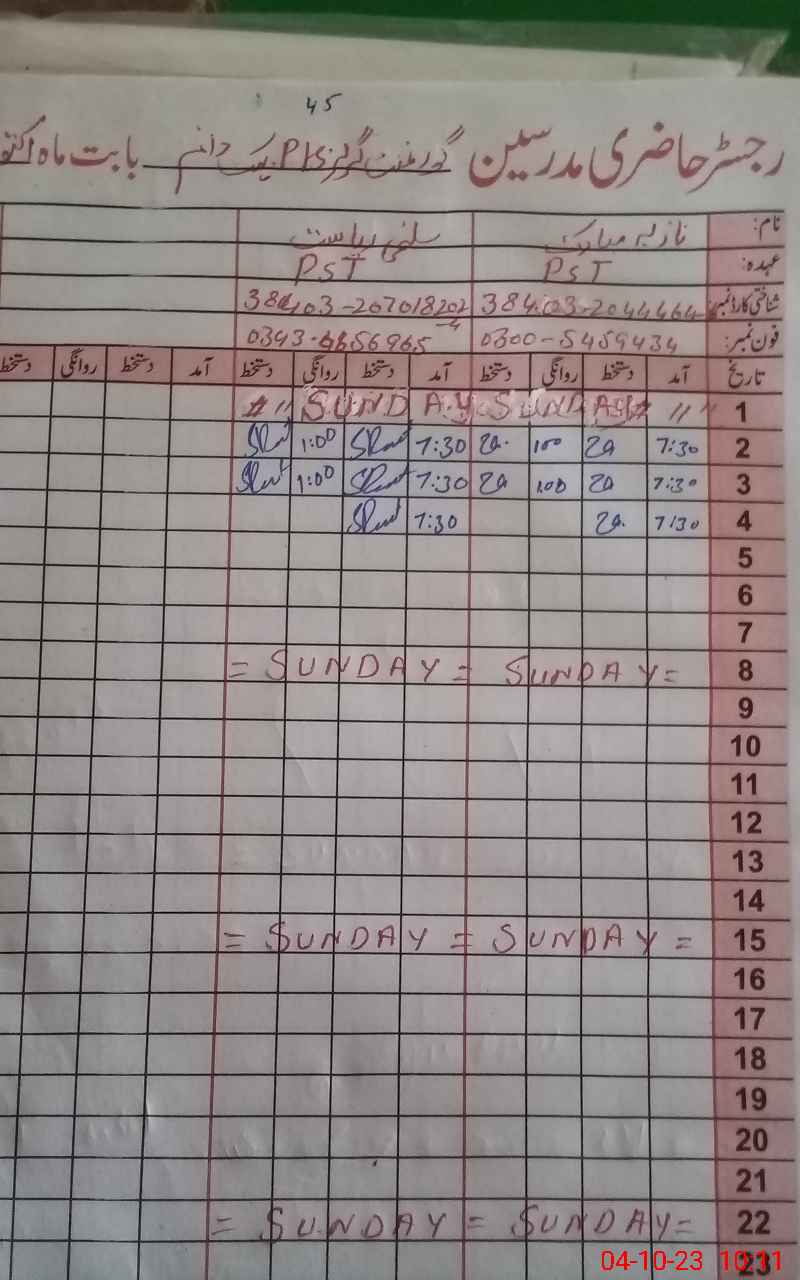 45
رجسٹر حاضری مدرسین گورنمنٹ گرلز P/S بابت ماہ
نام: نازیہ مبارک سلمی ریاست
عہدہ: PST PST
شناختی کارڈ نمبر: 38403-2044464 38403-207018202
فون نمبر: 0300-5459434
تاریخ آمد دستخط روانگی دستخط آمد دستخط روانگی دستخط آمد دستخط روانگی دستخط
1 " " SUNDAY SUNDAY "
2 7:30 100 7:30 1:00
3 7:30 100 7:30 1:00
4 7:30 7:30
5
6
7
8 = SUNDAY = SUNDAY =
9
10
11
12
13
14
15 = SUNDAY = SUNDAY =
16
17
18
19
20
21
22 = SUNDAY = SUNDAY =
23
04-10-23 10:11